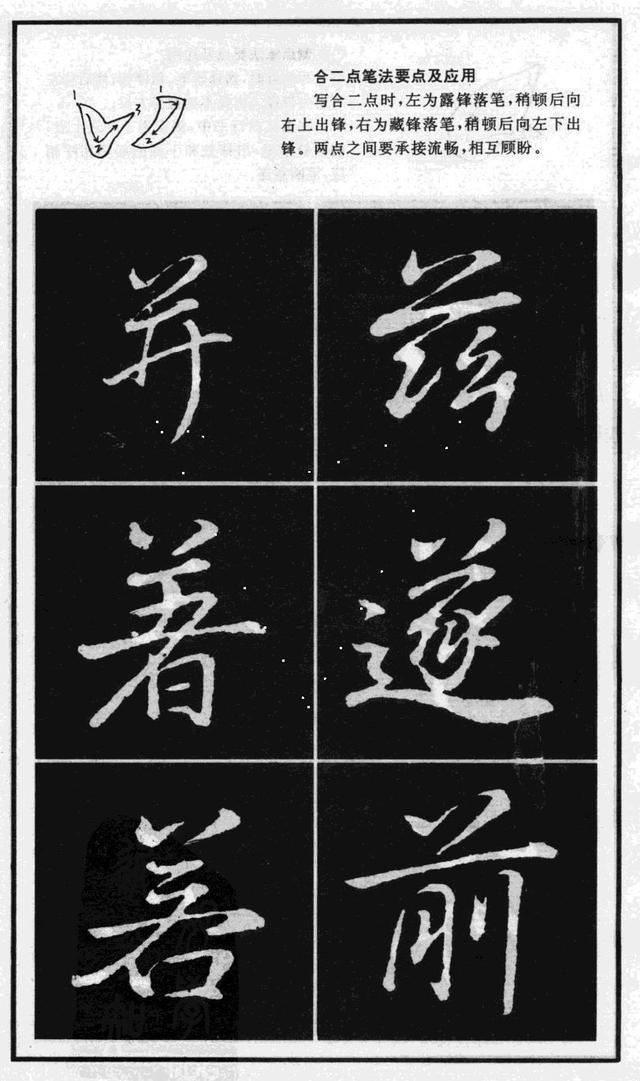 合二点笔法要点及应用
写合二点时,左为露锋落笔,稍顿后向
右上出锋,右为藏锋落笔,稍顿后向左下出
锋。两点之间要承接流畅,相互顾盼。
1 2 3 1 2
兹 并
遂 着
前 若